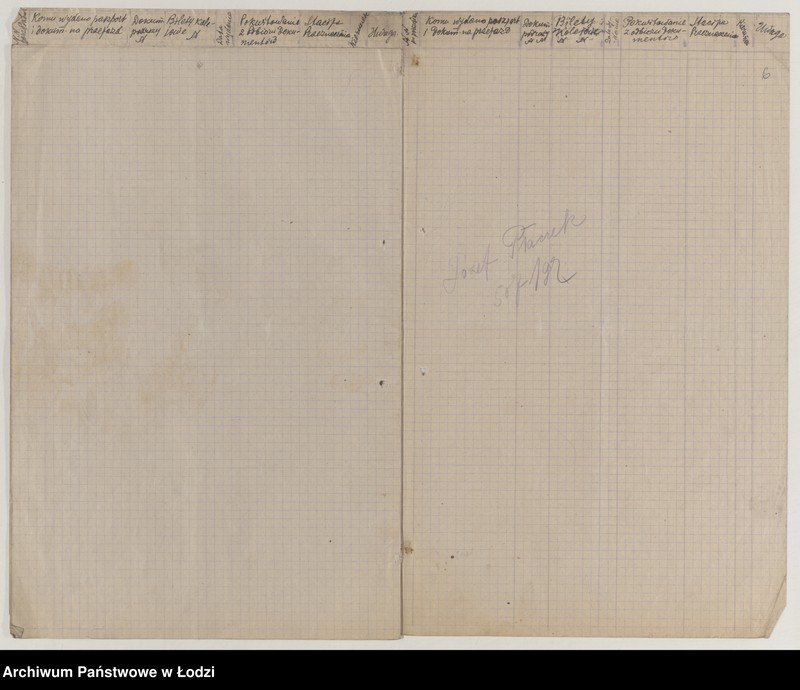 Komu wydano paszport
i dokum. na przejazd
Dokum.
podróży
N
Bilety Kole-
jowe N
Data
Pokwitowanie
z odbioru doku-
mentów
Stacja
Przeznaczenia
Uwaga
Komu wydano paszport
i dokum. na przejazd
Dokum.
podróży
N N
Bilety
Kolejowe
N N
Pokwitowanie
z odbioru doku-
mentów
Stacja
Przeznaczenia
Uwaga
6
Józef
Archiwum Państwowe w Łodzi